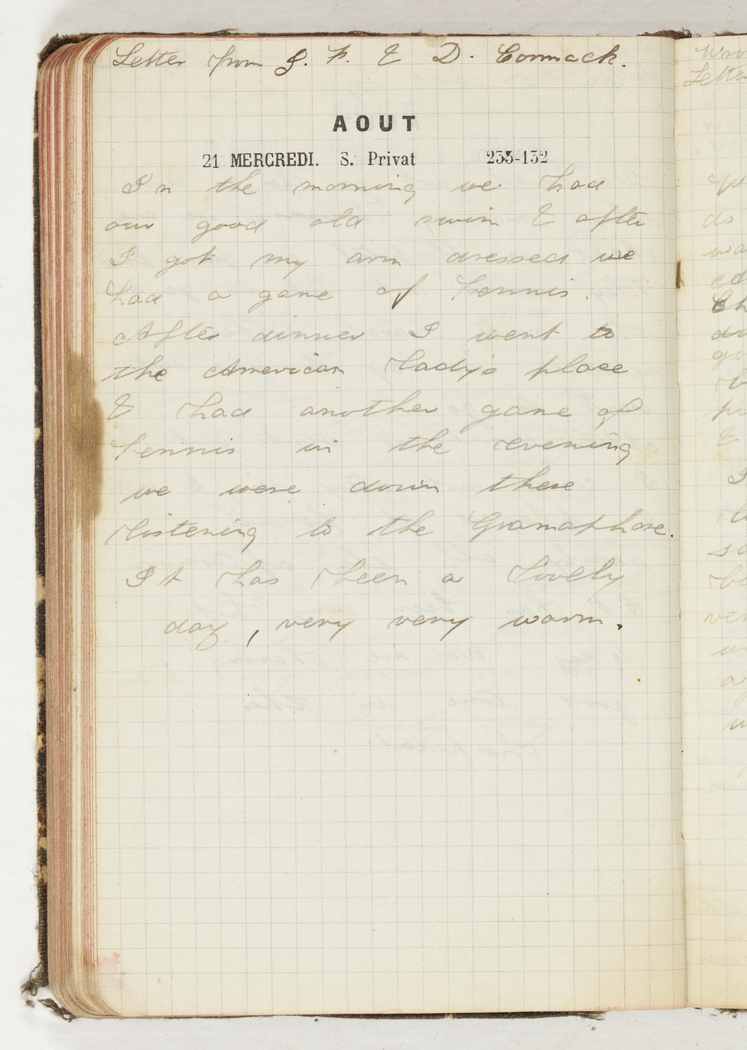 Letter from J. F. & D. Cormack.
AOUT
21 MERCREDI. S. Privat 233-132
In the morning we had
our good old swim & after
I got my arm dressed we
had a game of Tennis.
After dinner I went to
the American lady's place
& had another game of
Tennis in the evening
we were down there
listening to the Gramaphone.
It has been a lovely
day, very very warm.